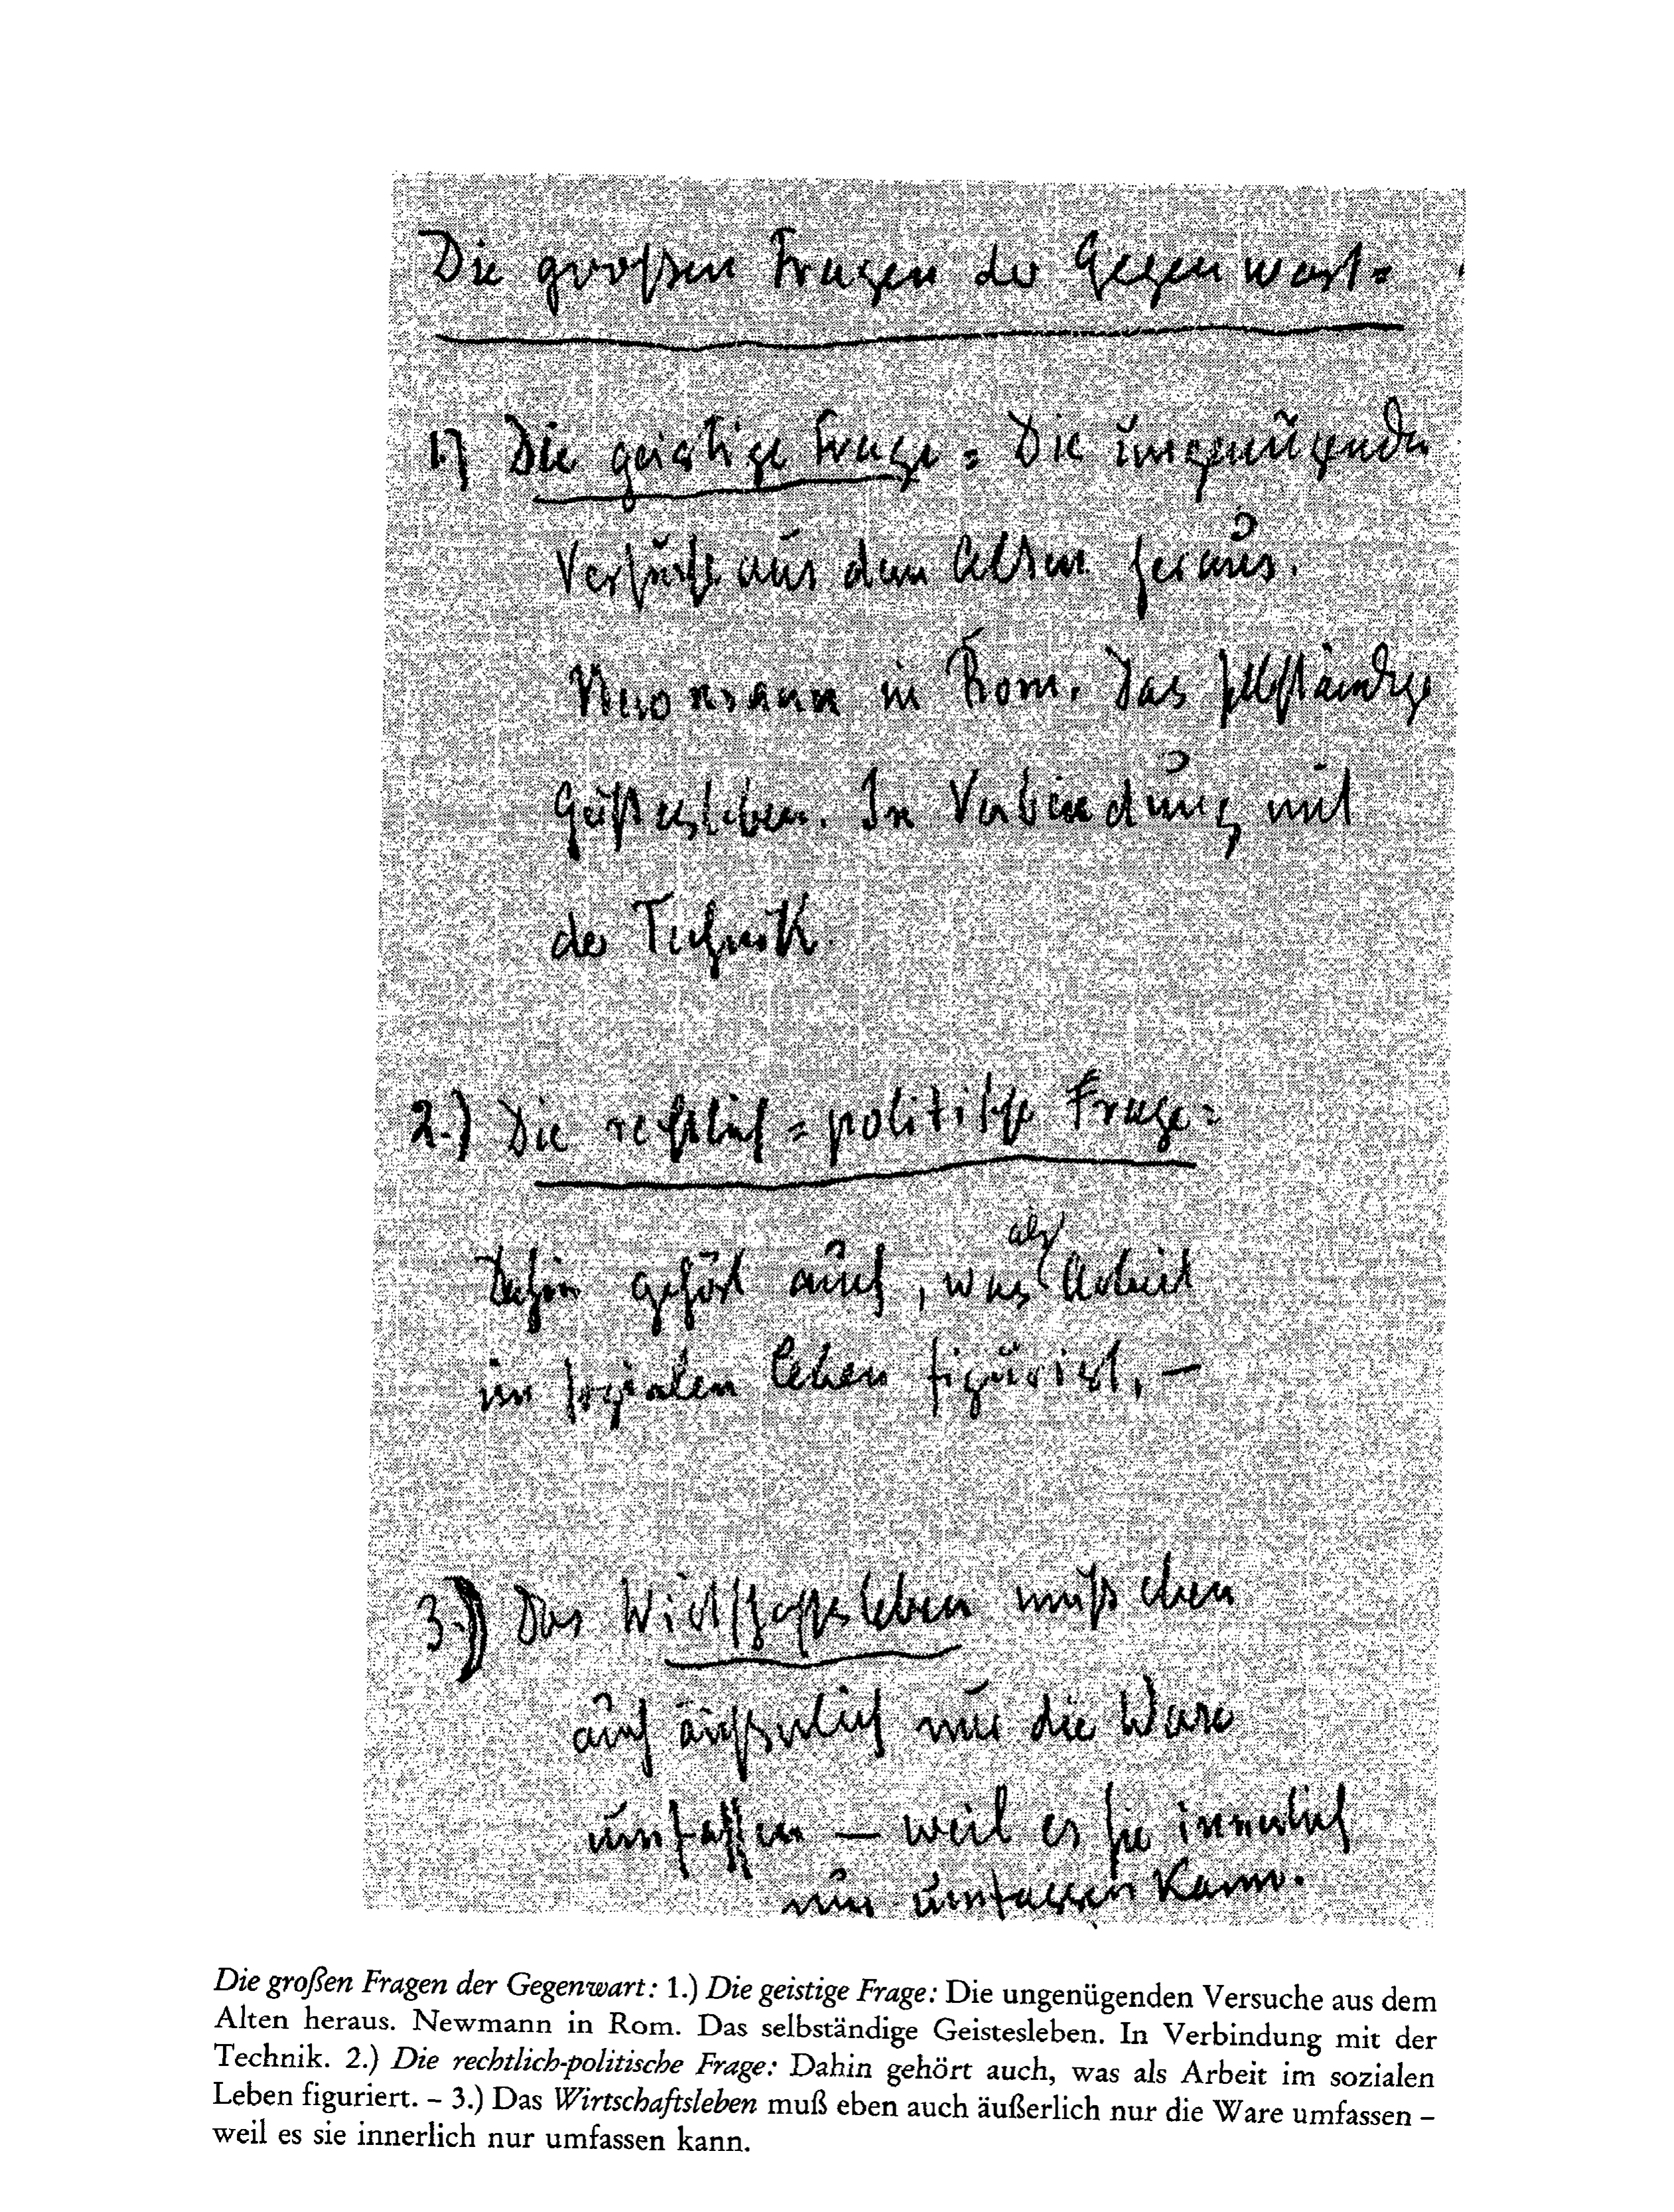 Die großen Fragen der Gegenwart =
1.) Die geistige Frage = Die ungenügenden
Versuche aus dem Alten heraus.
Newmann in Rom. Das selbständige
Geistesleben. In Verbindung mit
der Technik.
2.) Die rechtlich = politische Frage =
als
Dahin gehört auch, was Arbeit
im sozialen Leben figuriert. –
3.) Das Wirtschaftsleben muß eben
auch äußerlich nur die Ware
umfassen – weil es sie innerlich
nur umfassen kann.
Die großen Fragen der Gegenwart: 1.) Die geistige Frage: Die ungenügenden Versuche aus dem
Alten heraus. Newmann in Rom. Das selbständige Geistesleben. In Verbindung mit der
Technik. 2.) Die rechtlich-politische Frage: Dahin gehört auch, was als Arbeit im sozialen
Leben figuriert. – 3.) Das Wirtschaftsleben muß eben auch äußerlich nur die Ware umfassen –
weil es sie innerlich nur umfassen kann.